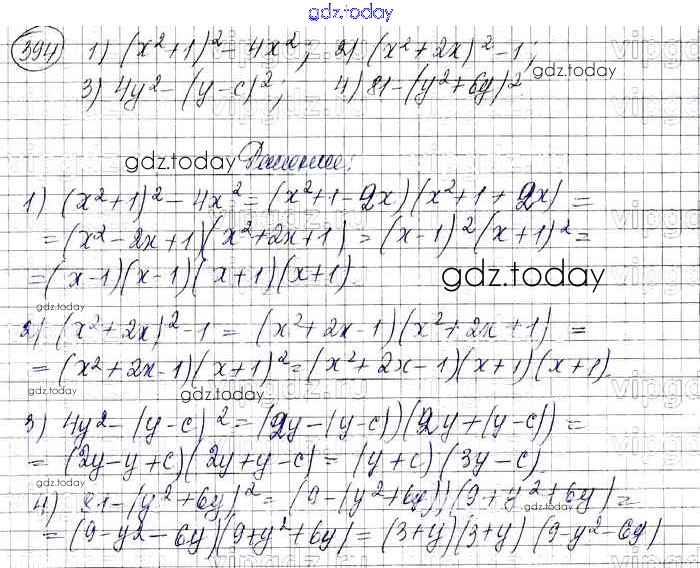 gdz.today
394 1) (x²+1)² - 4x²; 2) (x²+2x)² - 1;
3) 4y² - (y-c)²; 4) 81 - (y²+6y)²
gdz.today
gdz.today Решение:
1) (x²+1)² - 4x² = (x²+1-2x)(x²+1+2x) =
= (x²-2x+1)(x²+2x+1) = (x-1)²(x+1)² =
= (x-1)(x-1)(x+1)(x+1).
gdz.today
gdz.today
2) (x²+2x)² - 1 = (x²+2x-1)(x²+2x+1) =
= (x²+2x-1)(x+1)² = (x²+2x-1)(x+1)(x+1).
gdz.today
gdz.today
3) 4y² - (y-c)² = (2y-(y-c))(2y+(y-c)) =
= (2y-y+c)(2y+y-c) = (y+c)(3y-c)
gdz.today
4) 81 - (y²+6y)² = (9-(y²+6y))(9+y²+6y) =
gdz.today
= (9-y²-6y)(9+y²+6y) = (3+y)(3+y)(9-y²-6y)